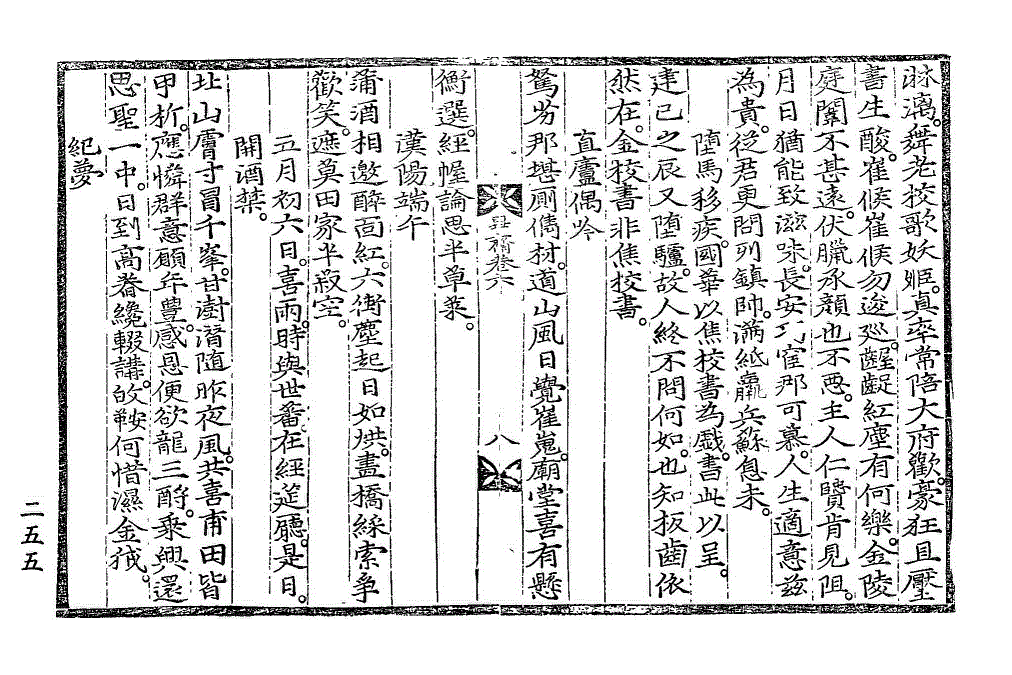 淋漓。舞老校歌妖姬。真率常陪大府歡。豪狂且壓
書生酸。崔候崔候勿逡巡。齷齪紅塵有何樂。金陵
庭闈不甚遠。伏臘承顔也不惡。主人仁賢肯見阻。
月日猶能致滋味。長安巧宦那可慕。人生適意玆
為貴。從君更問列鎮帥。滿紙羸兵蘇息未。
墮馬移疾。國華以焦校書為戲。書此以呈。
建已之辰又墮驢。故人終不問何如。也知扳齒依
然在。金校書非焦校書。
直廬偶吟
駑劣那堪厠儁材。道山風日覺崔嵬。廟堂喜有懸
衡選。經幄論思半草萊。
漢陽端午
蒲酒相邀醉面紅。六街塵起日如烘。畫橋綵索爭
歡笑。遮莫田家半菽空。
五月初六日。喜雨。時與世蕃。在經筵廳。是日。
開酒禁。
壯山膚寸冒千峯。甘澍濳隨昨夜風。共喜甫田皆
甲析。應憐群意願年豊。感恩便欲龍三酹。乘興還
思聖一中。日到高舂纔輟講。的鞍何惜濕金狨。
紀夢
卷六
八
二五五